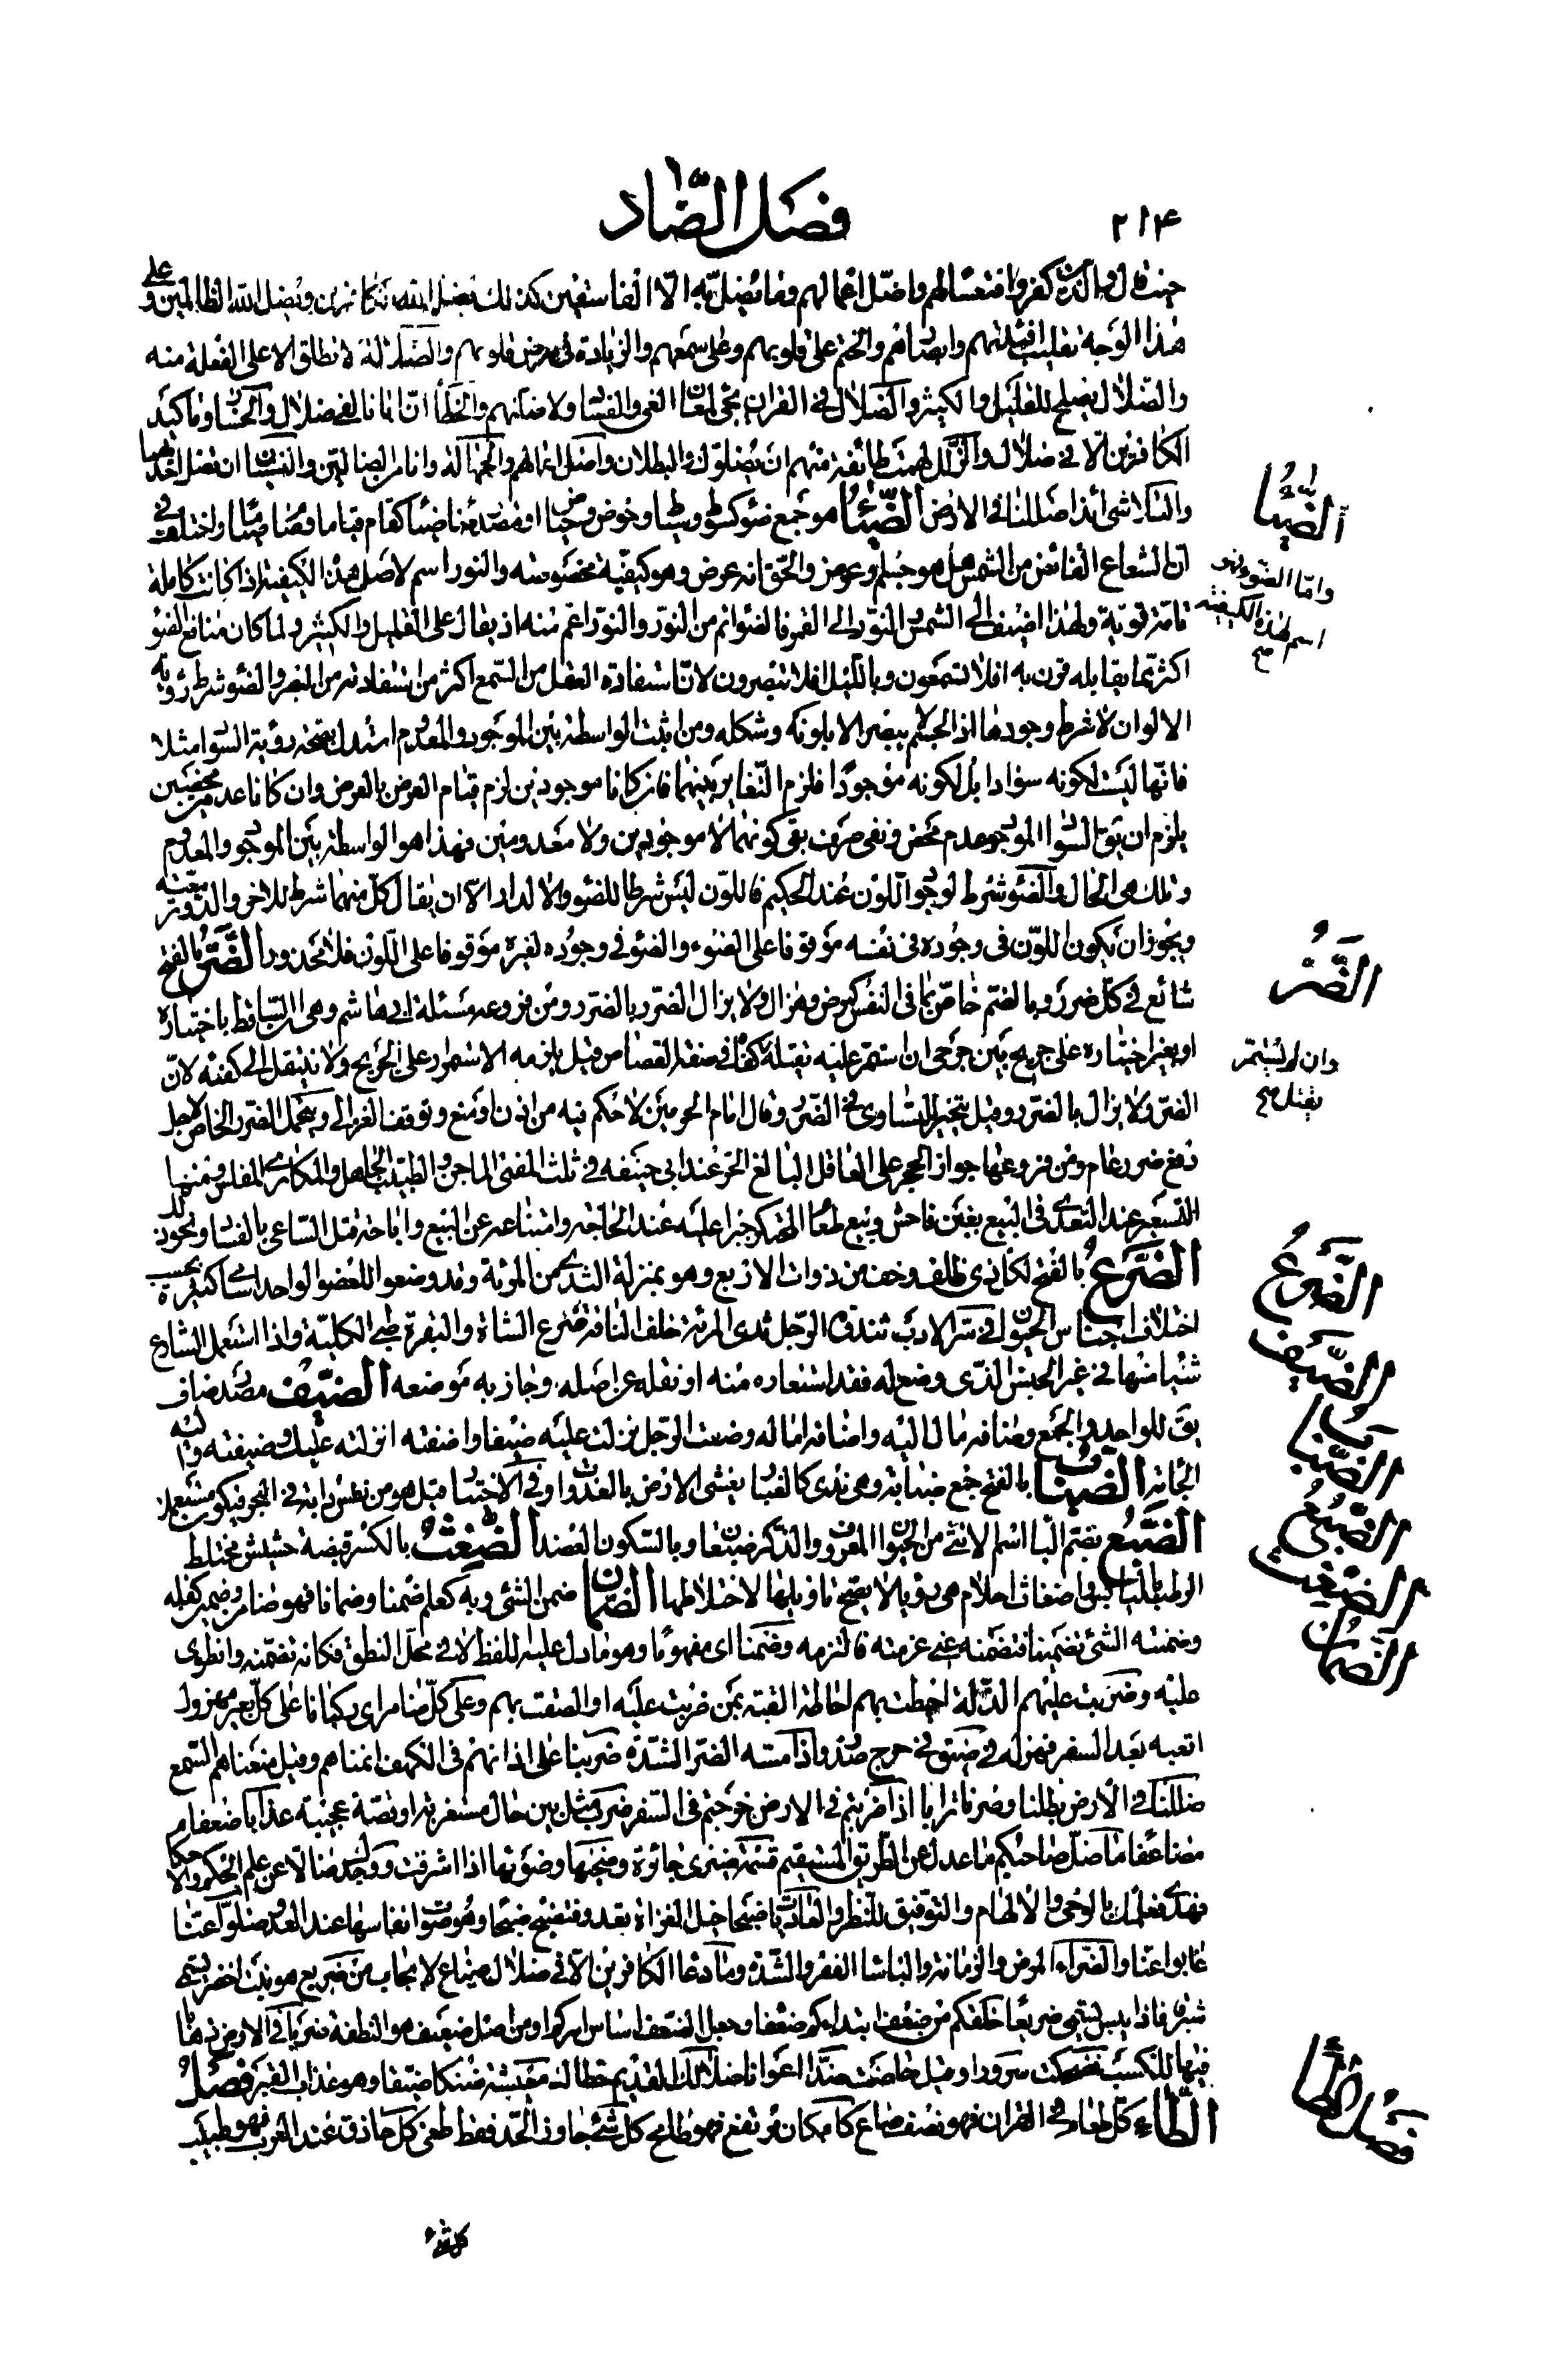 ٢١۴
فصل الضاد
حيث قال والذين كفروا فتعسا لهم واضل اعمالهم وما يضل به الا الفاسقين كذلك يضل الله الكافرين ويضل الله الظالمين وعلى
هذا الوجه تقليب افئدتهم وابصارهم والختم على قلوبهم وعلى سمعهم والزيادة في مرض قلوبهم والضلالة لا تطلق الا على الفعلة منه
والضلال يصلح للقليل والكثير والضلال في القران يجئ لمعان الغي والفساد ولاضلنهم والخطأ ان ابانا لفي ضلال والخسار وما كيد
الكافرين الا في ضلال والزلل لهمت طائفة منهم ان يضلوك والبطلان واضل اعمالهم والجهالة وانا من الضالين والنسيان ان تضل احديهما
والتلاشي أئذا ضللنا في الارض الضياء هو جمع ضوء كسوط وسياط وحوض وحياض او مصدر ضاء ضياء كقام قياما وصام صياما واختلف في
ان الشعاع الفائض من الشمس هل هو جسم او عرض والحق انه عرض وهو كيفية مخصوصة والنور اسم لاصل هذه الكيفية اذا كانت كاملة
تامة قوية ولهذا اضيف الى الشمس والنور الى القمر فالضوء اتم من النور والنور اعم منه اذ يقال على القليل والكثير ولما كان منافع الضوء
اكثر مما يقابله قرن به افلا تسمعون وبالليل افلا تبصرون لان استفادة العقل من السمع اكثر من استفادته من البصر والضوء شرط رؤية
الالوان لا شرط وجودها اذ الجسم لا يبصر الا بلونه وشكله ومن اثبت الواسطة بين الموجود والمعدوم استدل بصحة رؤية السواد مثلا
فانها ليست لكونه سوادا بل لكونه موجودا فلزم التغاير بينهما فان كانا موجودين لزم قيام العرض بالعرض وان كانا عدميين محضين
يلزم ان يق السواد الموجود عدم محض ونفي صرف بقى كونهما لا موجودين ولا معدومين فهذا هو الواسطة بين الموجود والمعدوم
وتلك هي الحال والضوء شرط لوجود اللون عند الحكيم فاللون ليس شرطا للضوء والا لدار الا ان يقال كل منهما شرط للاخر والدور معية
ويجوز ان يكون اللون في وجوده في نفسه موقوفا على الضوء والضوء في وجوده لغيره موقوفا على اللون فلا محذور الضر بالفتح
شائع في كل ضرر وبالضم خاص بما في النفس كمرض وهزال ولا يزال الضرر بالضرر ومن فروعه مسئلة ابي هاشم وهي الساقط باختياره
او بغير اختياره على جريح بين جرحى ان استمر عليه يقتله كفؤا في صفة القصاص قيل يلزمه الاستمرار على الجريح ولا ينتقل الى كفئه لان
الضرر لا يزال بالضرر وقيل يتخير للتساوي في الضرر وقال امام الحرمين لا حكم فيه من اذن او منع وتوقف الغزالي ويتحمل الضرر الخاص لاجل
دفع ضرر عام ومن فروعها جواز الحجر على العاقل البالغ الحر عند ابي حنيفه في ثلث المفتي الماجن والطبيب الجاهل والمكاري المفلس ومنها
التسعير عند التعدي في البيع بغبن فاحش وبيع طعام المحتكر جبرا عليه عند الحاجة وامتناعه عن البيع واباحة قتل الساعي بالفساد ونحو ذلك
الضرع بالفتح لكل ذي ظلف وخف من ذوات الاربع وهو بمنزلة الثدي من المرئة وقد وضعوا للعضو الواحد اسامي كثيرة بحسب
اختلاف اجناس الحيوان في سر الادب ثندؤة الرجل ثدي المرئة خلف الناقة ضرع الشاة والبقرة طبي الكلبة واذا استعمل الشارع
شيئا منها في غير الجنس الذي وضع له فقد استعاره منه او نقله عن اصله وجاز به موضعه الضيف مصدر ضاف
يق للواحد والجمع وضافه مال اليه واضافه اماله وضفت الرجل نزلت عليه ضيفا واضفته انزلته عليك وضيفته واليه
الجأته الضباب بالفتح جمع ضبابة وهي ندى كالغبار يغشى الارض بالغدوات وفي الاختيار قيل هو من نفس دابة في البحر فيكون مستعملا
الضبع بضم الباء اسم لانثى من الحيوان المعروف والذكر ضبعان وبالسكون العضد الضغث بالكسر قبضة حشيش مختلط
الرطب باليابس واضغاث احلام هي رؤيا لا يصح تاويلها لاختلاطها الضمان ضمن الشئ وبه كعلم ضمنا وضمانا فهو ضامن وضمين كفله
وضمنته الشئ تضمينا فتضمنه عني غرمته فالتزمه وضمنا اي مفهوما وهو ما دل عليه للفظ لا في محل النطق فكانه تضمنه وانطوى
عليه وضربت عليهم الذلة احيطت بهم احاطة القبة بمن ضربت عليه او الصقت بهم وعلى كل ضامر اي ركبانا على كل بعير مهزول
اتعبه بعد السفر فهزله في ضيق في حرج صدر واذا مسه الضر الشدة ضربنا على اذانهم في الكهف انمناهم وقيل منعناهم السمع
ضللنا في الارض بطلنا وصرنا ترابا اذا ضربتم في الارض خرجتم في السفر ضرب مثل بين حال مستغربة او قصة عجيبة عذابا ضعفا
مضاعفا ما ضل صاحبكم ما عدل عن الطريق المستقيم قسمة ضيزى جائرة وضحيها وضوئها اذا اشرقت ووجدك ضالا عن علم الحكم والاحكام
فهدى فعلمك بالوحي والالهام والتوفيق للنظر والعاديات ضبحا خيل الغزاة تعدو فتضبح ضبحا وهو صوت انفاسها عند العدو ضلوا عنا
غابوا عنا والضراء المرض والزمانة والباساء الفقر والشدة وما دعاء الكافرين الا في ضلال ضياع لا يجاب من ضريع هو نبت اخضر يسمى
شبرق فاذا يبس يسمى ضريعا خلقكم من ضعف ابتداكم ضعفا وجعل الضعف اساس امركم او من اصل ضعيف هو النطفة ضربا في الارض ذهابا
فيها للكسب فضحكت سرورا وقيل حاضت ضدا اعوانا ضلالك القديم خطائك معيشة ضنكا ضيقا وهو عذاب القبر فصل
الطاء كل طعام في القران فهو نصف صاع كل مكان مرتفع فهو طامح كل شئ جاوز الحد فقد طغى كل حاذق عند العرب فهو طبيب
كل شئ
الضياء
واما الضوء فهو
اسم لهذه الكيفية
صح
الضر
وان لم يستمر
يقتل صح
الضرع
الضيف
الضباب
الضبع
الضغث
الضمان
فصل الطاء